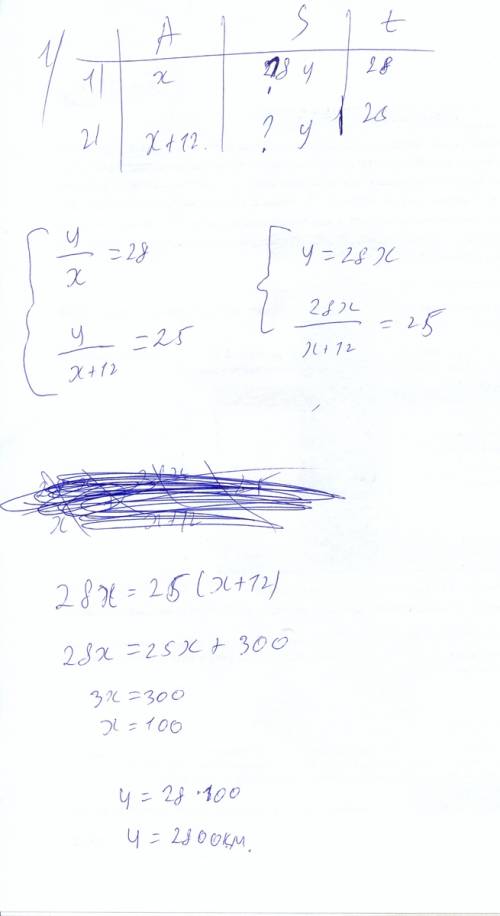 1/
A S t
1) x ? y 28
2) x+12. ? y 25
y/x = 28
y/(x+12) = 25
y = 28x
28x/(x+12) = 25
28x = 25(x+12)
28x = 25x + 300
3x = 300
x = 100
y = 28 · 100
y = 2800км.